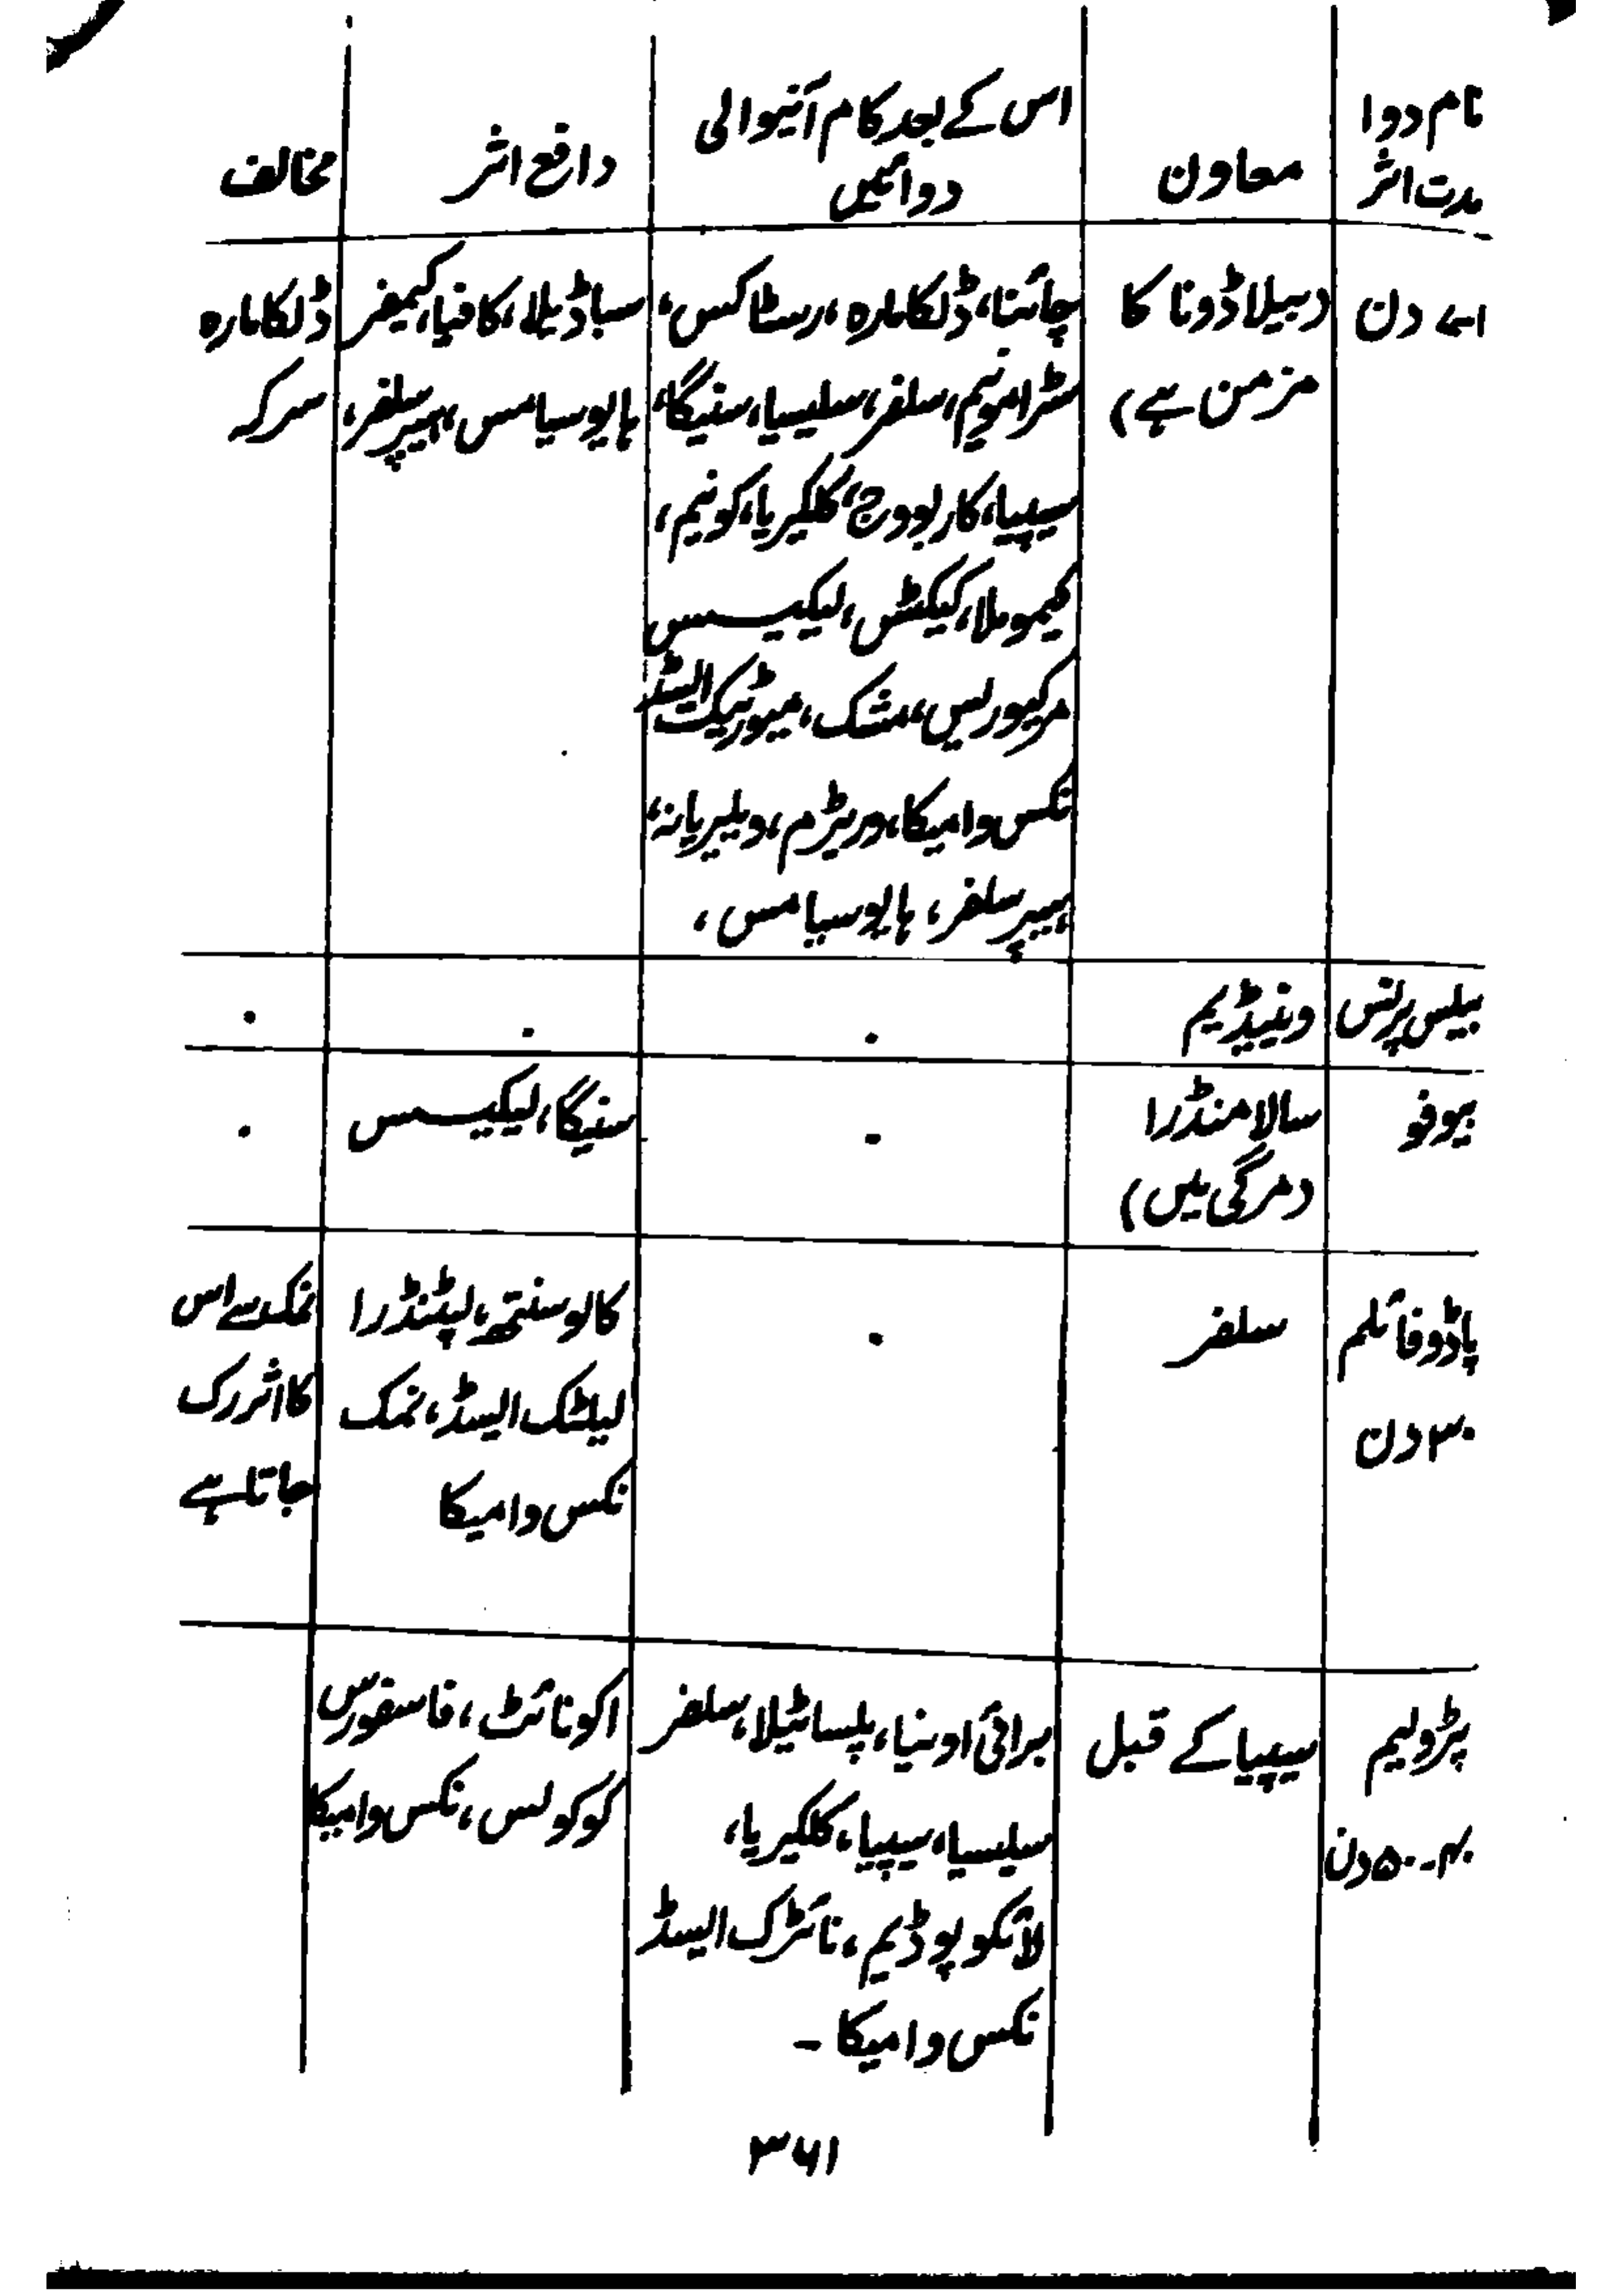 نام دوا
مدت اثر
معاون
اس کے بعد کام آنیوالی
دوائیں
دافع اثر
مخالف
دن
(بیلاڈونا کا
مزمن ہے)
چائنا، ڈلکامارہ، رسٹاکس،
سٹرامونیم، سلفر، سلیسیا، سنیگا،
سیپیا، کاربوویج، کلکیریا، کونیم،
کیموملا، کیکٹس، لیکیسس
مرکیورس، مشک، میوریٹک ایسڈ
نکس وامیکا، وریٹرم، ویلیریانہ،
ہیپر سلفر، ہایوسیامس،
سباڈیلا، کافیا، کیمفر
ہایوسیامس، ہیپر سلفر،
ڈلکامارہ
سرکہ
بیلس پرنس
وینیڈیم
۰
۰
۰
بیوفو
سالامنڈرا
(مرگی میں)
-
سنیگا، لیکیسس
۰
پاڈوفائلم
۳۰ دن
سلفر
۰
کالوسنتھ، لپٹنڈرا
لیکٹک ایسڈ، نمک
نکس وامیکا
نمک سے اس
کا اثر رک
جاتا ہے
پٹرولیم
۴۰-۵۰ دن
سیپیا کے قبل
برائی اونیا، پلساٹیلا، سلفر
سلیسیا، سیپیا، کلکیریا،
لائکوپوڈیم، نائٹرک ایسڈ
نکس وامیکا -
اکونائٹ، فاسفورس
کوکولس، نکس وامیکا
۳۶۱